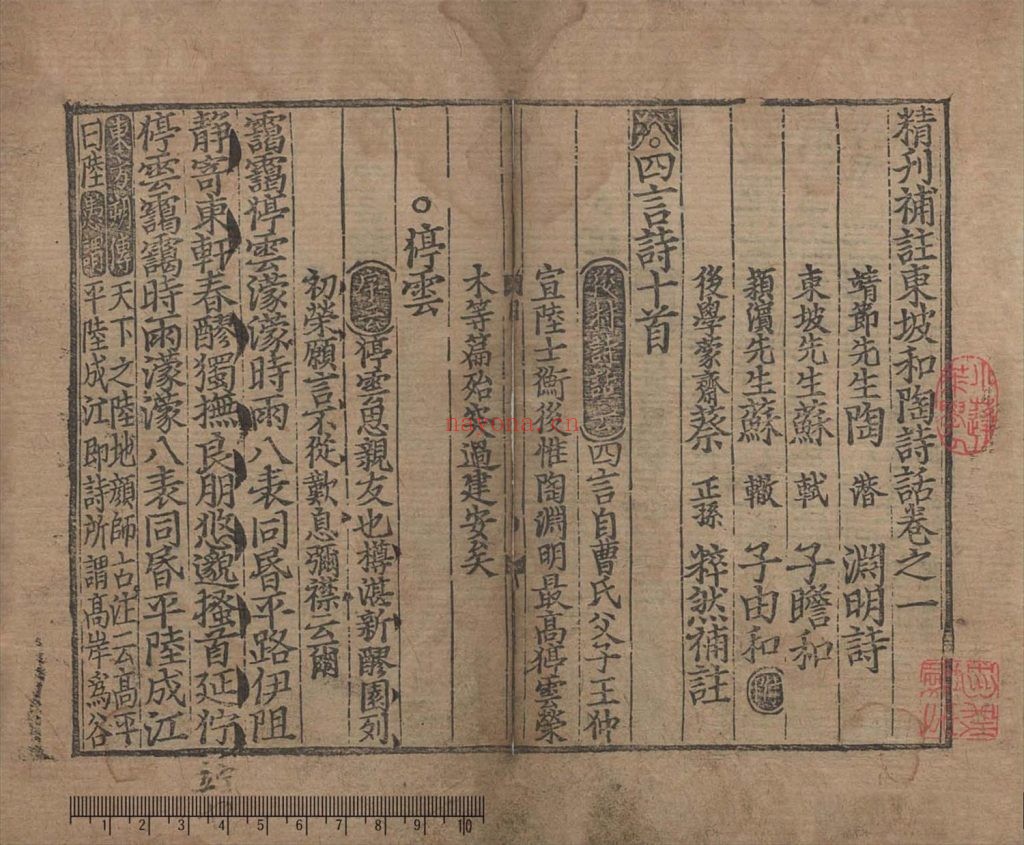 精刋補註東坡和陶詩話卷之一
靖節先生陶 潛 淵明詩
東坡先生蘇 軾 子瞻和
潁濱先生蘇 轍 子由和
後學蒙齋蔡 正孫 粹然補註
四言詩十首
四言自曹氏父子王仲
宣陸士衡後惟陶淵明最高停雲榮
木等篇殆突過建安矣
○停雲
序云停雲思親友也罇湛新醪園列
初榮願言不從歎息彌襟云爾
靄靄停雲濛濛時雨八表同昬平路伊阻
靜寄東軒春醪獨撫良朋悠邈搔首延佇
停雲靄靄時雨濛濛八表同昬平陸成江
東方朔傳天下之陸地顔師古注云高平
曰陸愚謂平陸成江即詩所謂高岸爲谷
1 2 3 4 5 6 7 8 9 10